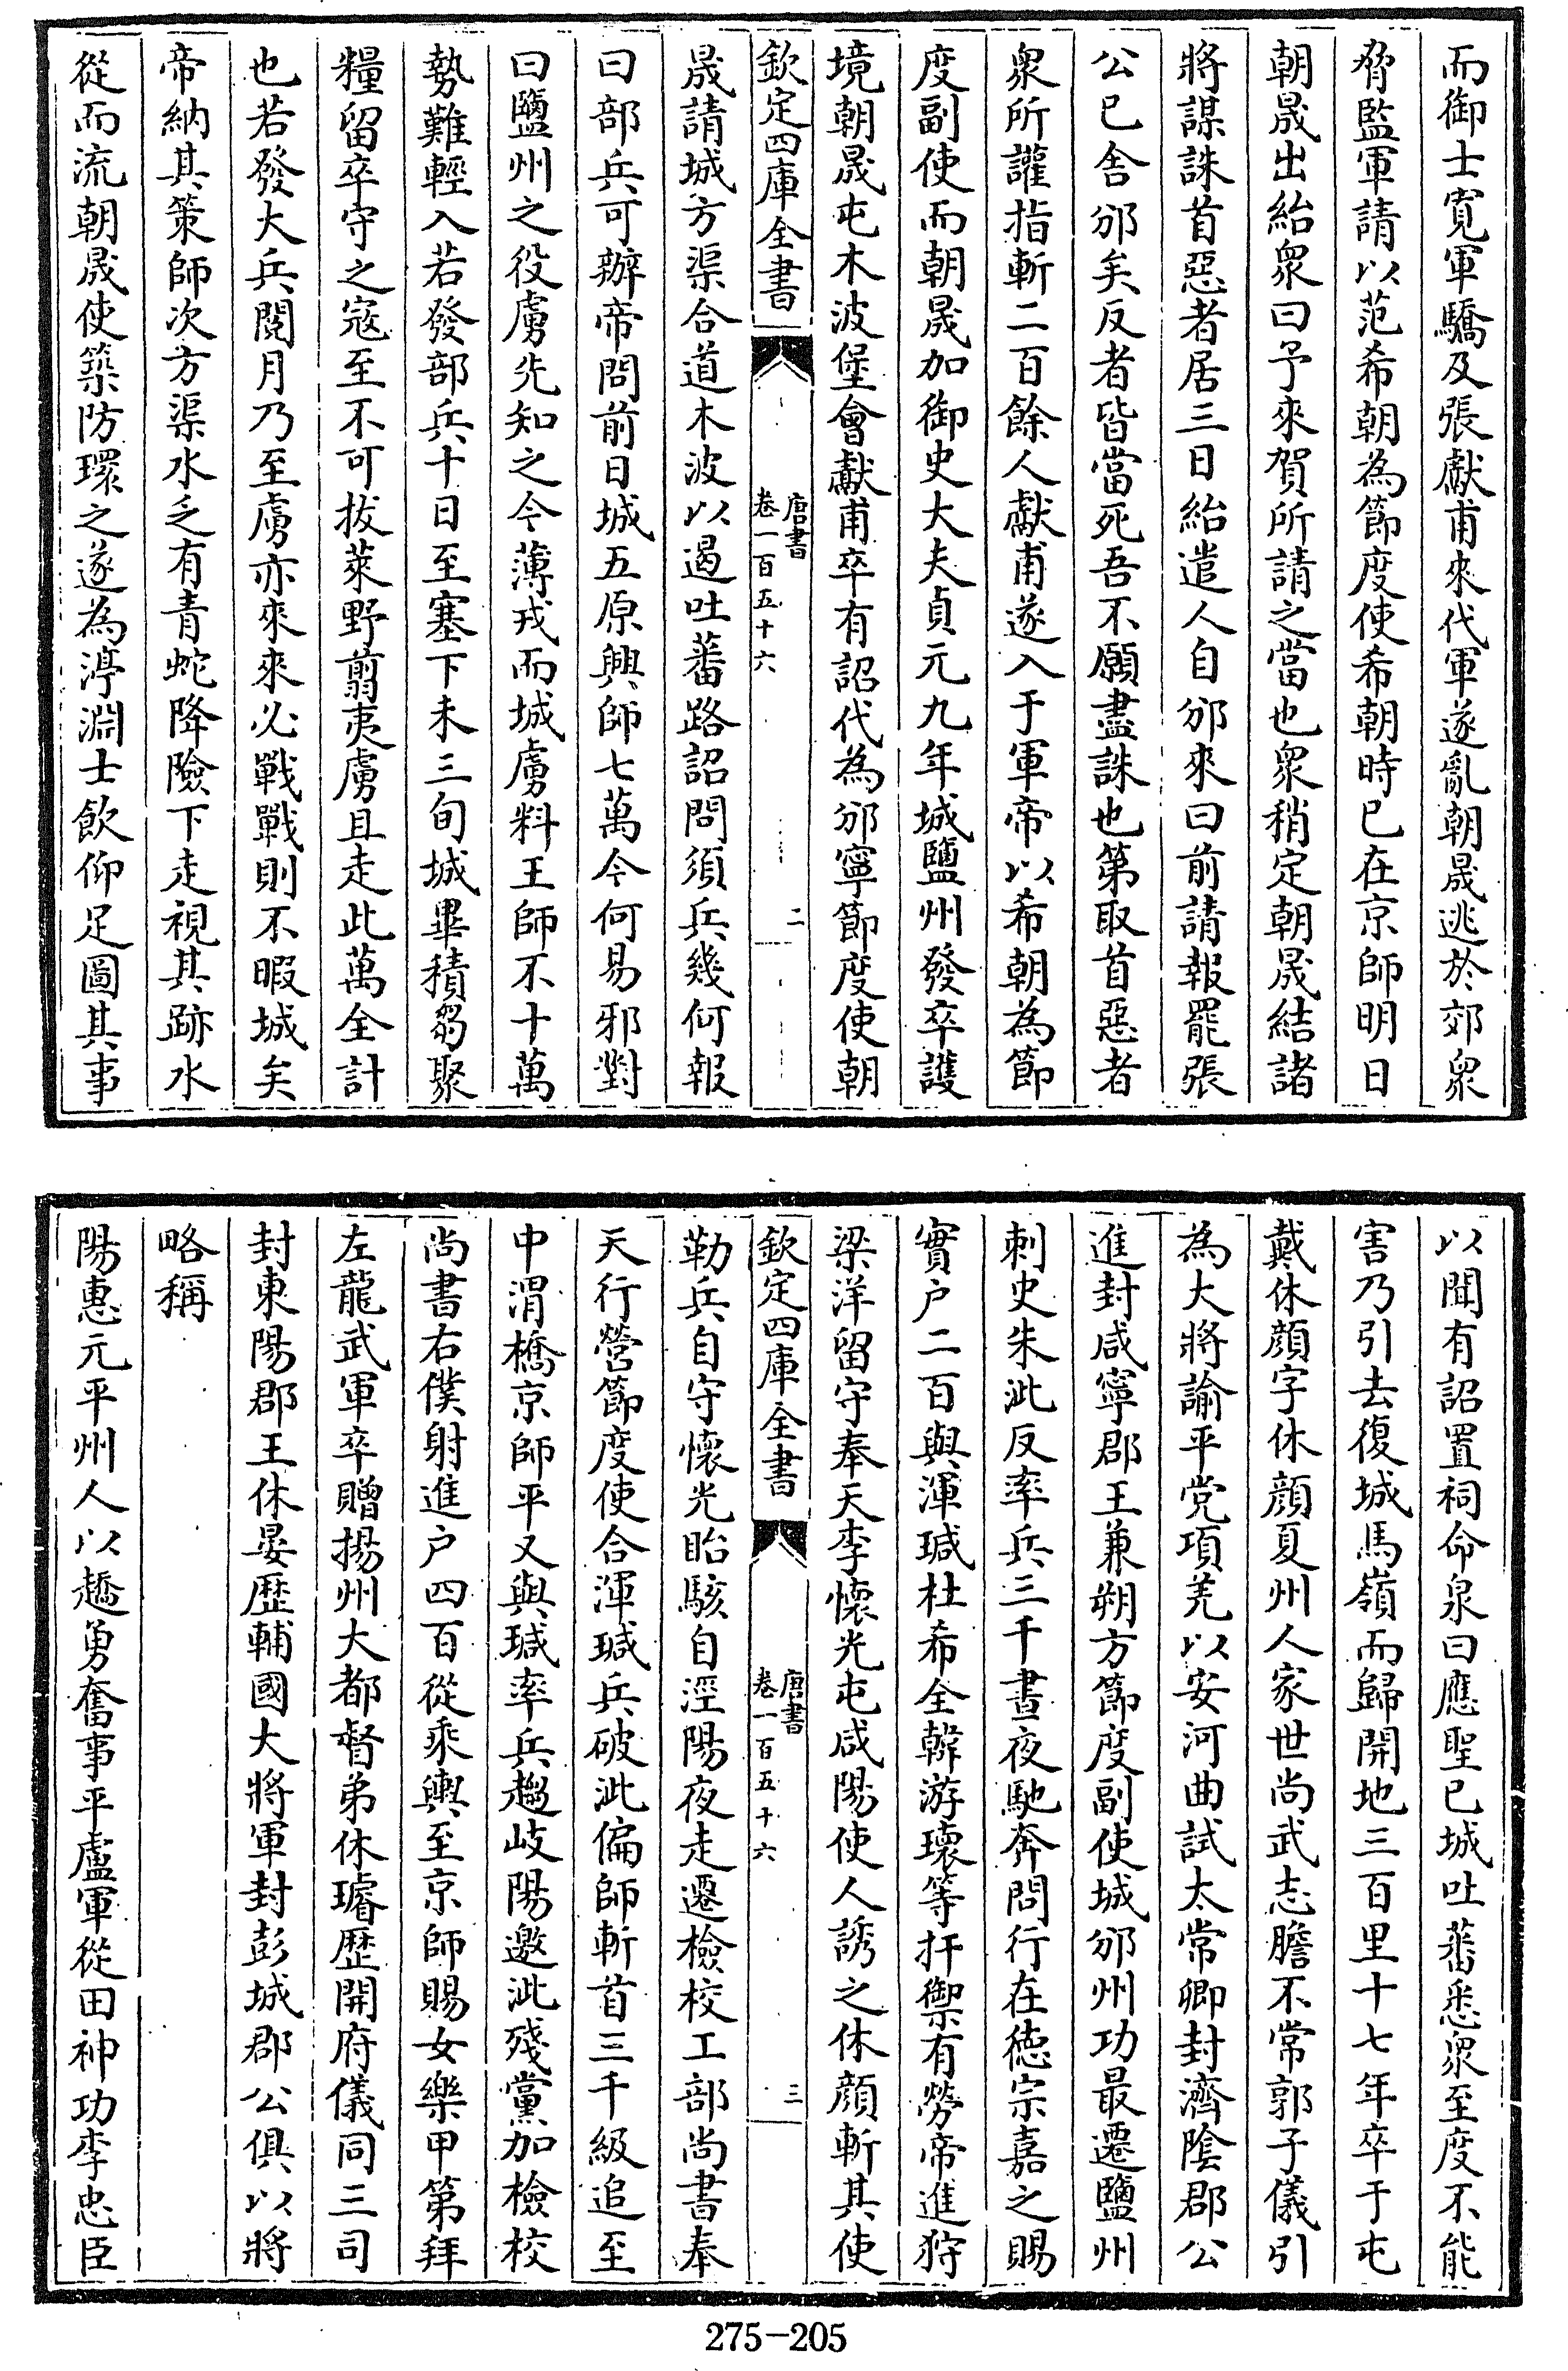 而御士寛軍驕及張獻甫來代軍遂亂朝晟逃於郊衆
脅監軍請以范希朝為節度使希朝時已在京師明日
朝晟出紿衆曰予來賀所請之當也衆稍定朝晟結諸
將謀誅首惡者居三日紿遣人自邠來曰前請報罷張
公已舍邠矣反者皆當死吾不願盡誅也第取首惡者
衆所讙指斬二百餘人獻甫遂入于軍帝以希朝為節
度副使而朝晟加御史大夫貞元九年城鹽州發卒護
境朝晟屯木波堡會獻甫卒有詔代為邠寧節度使朝
欽定四庫全書
唐書
卷一百五十六
二
晟請城方渠合道木波以遏吐蕃路詔問須兵幾何報
曰部兵可辦帝問前日城五原興師七萬今何易邪對
曰鹽州之役虜先知之今薄戎而城虜料王師不十萬
勢難輕入若發部兵十日至塞下未三旬城畢積芻聚
糧留卒守之寇至不可拔萊野翦夷虜且走此萬全計
也若發大兵閱月乃至虜亦來來必戰戰則不暇城矣
帝納其策師次方渠水乏有青蛇降險下走視其跡水
從而流朝晟使築防環之遂為渟淵士飲仰足圖其事
以聞有詔置祠命泉曰應聖已城吐蕃悉衆至度不能
害乃引去復城馬嶺而歸開地三百里十七年卒于屯
戴休顔字休顔夏州人家世尚武志膽不常郭子儀引
為大將諭平党項羌以安河曲試太常卿封濟陰郡公
進封咸寧郡王兼朔方節度副使城邠州功最遷鹽州
刺史朱泚反率兵三千晝夜馳奔問行在德宗嘉之賜
實户二百與渾瑊杜希全韓游瓌等扞禦有勞帝進狩
梁洋留守奉天李懷光屯咸陽使人誘之休顔斬其使
欽定四庫全書
唐書
卷一百五十六
三
勒兵自守懷光眙駭自涇陽夜走遷檢校工部尚書奉
天行營節度使合渾瑊兵破泚偏師斬首三千級追至
中渭橋京師平又與瑊率兵趨岐陽邀泚殘黨加檢校
尚書右僕射進户四百從乘輿至京師賜女樂甲第拜
左龍武軍卒贈揚州大都督弟休璿歷開府儀同三司
封東陽郡王休晏歷輔國大將軍封彭城郡公俱以將
略稱
陽惠元平州人以趫勇奮事平盧軍從田神功李忠臣
275-205